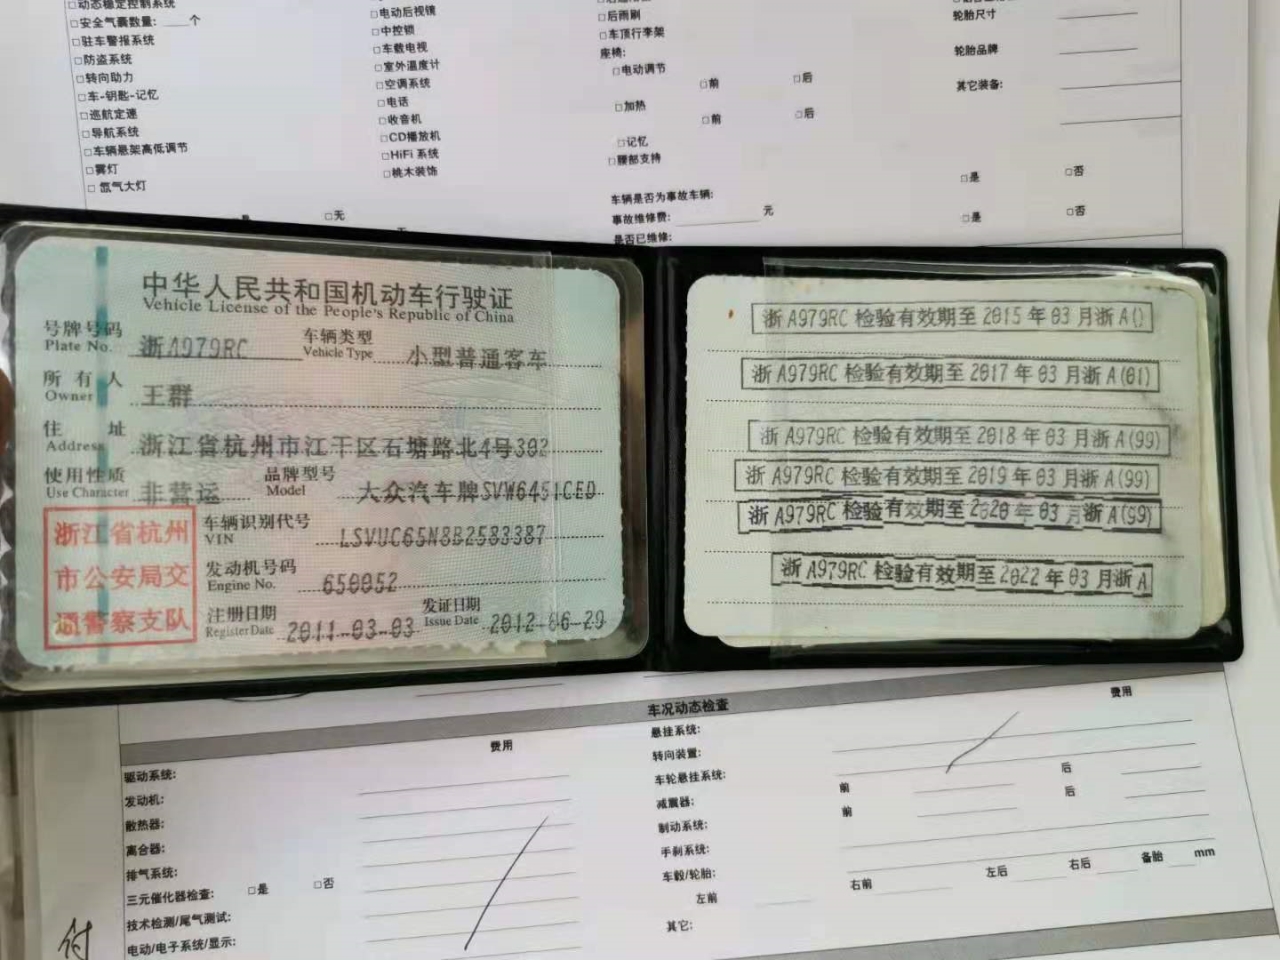 □动态稳定控制系统
□安全气囊数量: 个
□驻车警报系统
□防盗系统
□转向助力
□车-钥匙-记忆
□巡航定速
□导航系统
□车辆悬架高低调节
□雾灯
□氙气大灯
□无
□电动后视镜
□中控锁
□车载电视
□室外温度计
□空调系统
□电话
□收音机
□CD播放机
□HiFi 系统
□桃木装饰
□后雨刷
□车顶行李架
座椅:
□电动调节
□前 □后
□加热
□前 □后
□记忆
□腰部支持
□是 □否
车辆是否为事故车辆:
事故维修费: 元 □是 □否
是否已维修:
轮胎尺寸
轮胎品牌
其它装备:
中华人民共和国机动车行驶证
Vehicle License of the People's Republic of China
号牌号码 浙A979RC 车辆类型 小型普通客车
Plate No. Vehicle Type
所有人 王群
Owner
住址 浙江省杭州市江干区石塘路北4号302
Address
使用性质 非营运 品牌型号 大众汽车牌SVW6451CED
Use Character Model
浙江省杭州
市公安局交
通警察支队
车辆识别代号 LSVUC65N8B2583387
VIN
发动机号码 650052
Engine No.
注册日期 2011-03-03 发证日期 2012-06-20
Register Date Issue Date
浙A979RC 检验有效期至 2015 年 03 月浙A()
浙A979RC 检验有效期至 2017 年 03 月浙A(01)
浙A979RC 检验有效期至 2018 年 03 月浙A(99)
浙A979RC 检验有效期至 2019 年 03 月浙A(99)
浙A979RC 检验有效期至 2020 年 03 月浙A(99)
浙A979RC 检验有效期至 2022 年 03 月浙A
车况动态检查
费用 费用
驱动系统:
发动机:
散热器:
离合器:
排气系统:
三元催化器检查: □是 □否
技术检测/尾气测试:
电动/电子系统/显示:
悬挂系统:
转向装置:
车轮悬挂系统: 前 后
减震器: 前 后
制动系统:
手刹系统:
车毂/轮胎: 左前 右前 左后 右后 备胎 mm
其它:
付